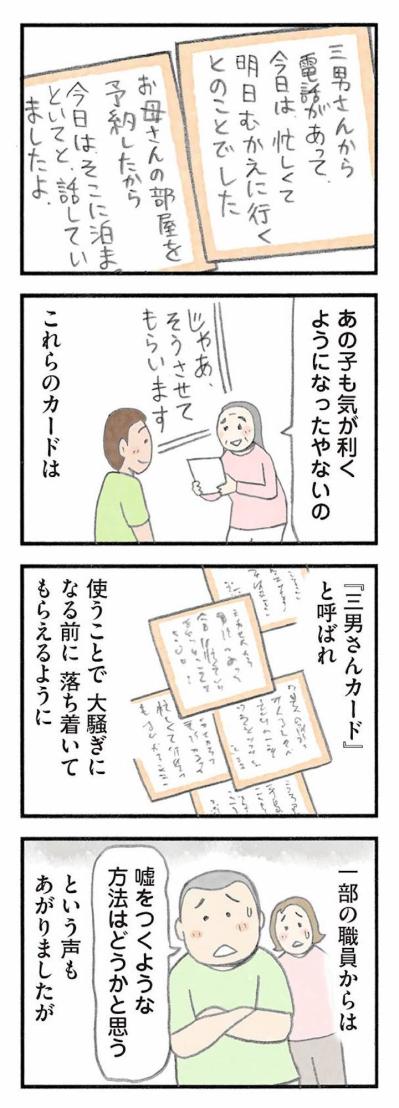 三男さんから
電話があって、
今日は、忙しくて
明日むかえに行く
とのことでした
お母さんの部屋を
予約したから
今日は、そこに泊ま
といてと、話してい
ましたよ。
あの子も気が利く
ようになったやないの
じゃあ、
そうさせて
もらいます
これらのカードは
『三男さんカード』
と呼ばれ
使うことで 大騒ぎに
なる前に 落ち着いて
もらえるように
一部の職員からは
嘘をつくような
方法はどうかと思う
という声も
あがりましたが